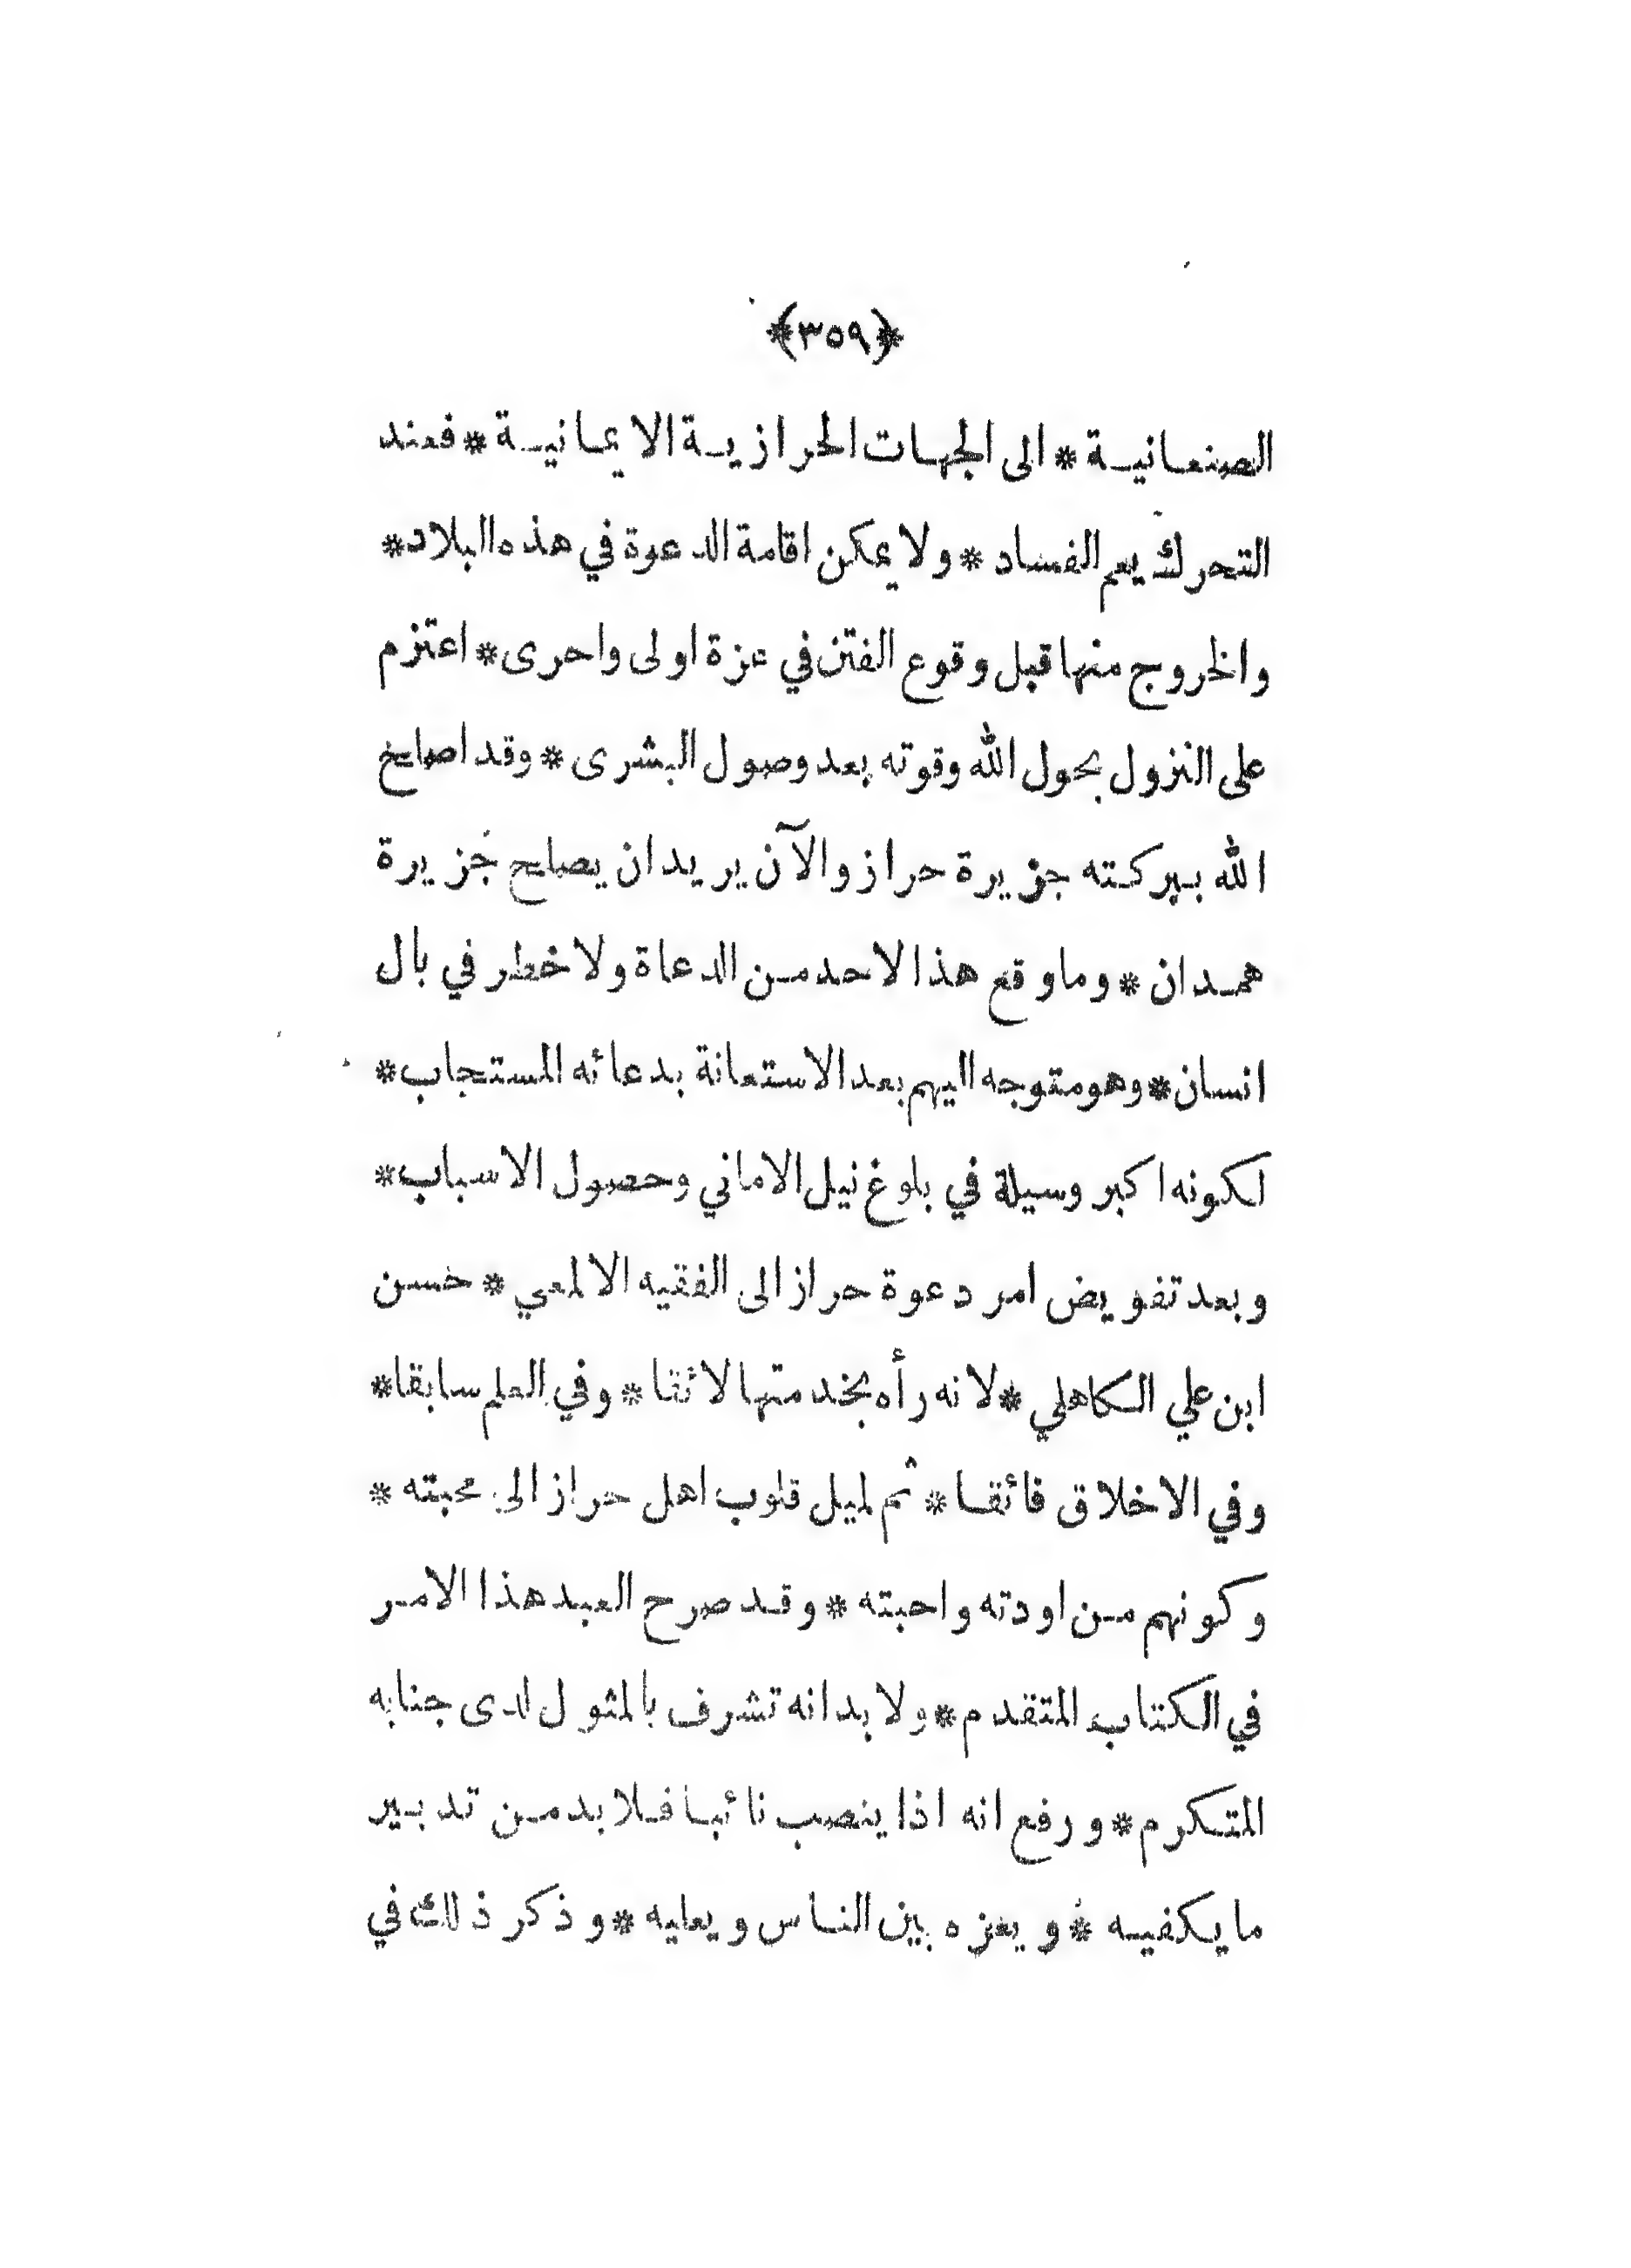 ﴿٣٥٩﴾
الصنعانية * الى الجهات الحرازية الايمانية * فعند
التحرك يعم الفساد * ولا يمكن اقامة الدعوة في هذه البلاد *
والخروج منها قبل وقوع الفتن في عزة اولى واحرى * اعتزم
على النزول بحول الله وقوته بعد وصول البشرى * وقد اصلح
الله ببركته جزيرة حراز والآن يريد ان يصلح جزيرة
همدان * وما وقع هذا لاحد من الدعاة ولا خطر في بال
انسان * وهو متوجه اليهم بعد الاستعانة بدعائه المستجاب *
لكونه اكبر وسيلة في بلوغ نيل الاماني وحصول الاسباب *
وبعد تفويض امر دعوة حراز الى الفقيه الالمعي * حسن
ابن علي الكاهلي * لانه رأه بخدمتها لائقا * وفي العلم سابقا *
وفي الاخلاق فائقا * ثم لميل قلوب اهل حراز الى محبته *
وكونهم من اودته واحبته * وقد صرح العبد هذا الامر
في الكتاب المتقدم * ولا بد انه تشرف بالمثول لدى جنابه
المتكرم * ورفع انه اذا ينصب نائبا فلا بد من تدبير
ما يكفيه * ويعزه بين الناس ويعليه * وذكر ذلك في